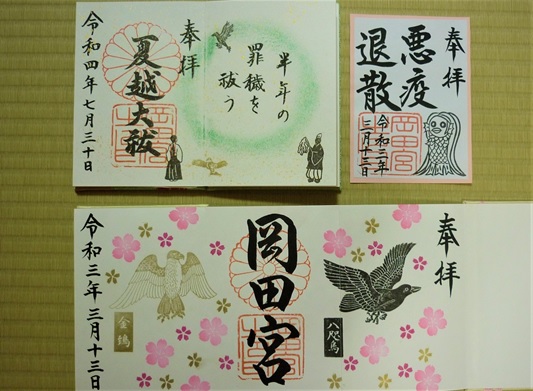 奉拝
半年の
罪穢を
祓う
夏越大祓
令和四年七月三十日
奉拝
悪疫
退散
岡田宮
令和三年
三月十三日
奉拝
八咫烏
岡田宮
金鵄
令和三年三月十三日